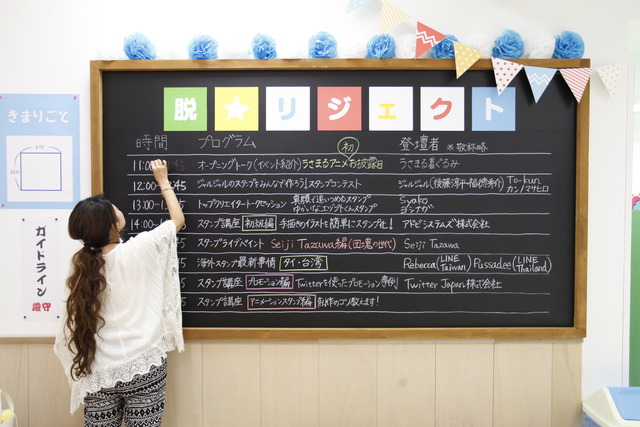 脱★リジェクト
きまりごと
370
320
ガイドライン
厳守
時間 プログラム 登壇者 ※敬称略
初
11:00 45 オープニングトーク(イベント紹介)うさまるアニメお披露目 うさまる着ぐるみ
12:00 45 ジャルジャルのスタンプをみんなで作ろう!スタンプコンテスト ジャルジャル(後藤淳平・福徳秀介) To-kun カンノマサヒロ
13:00 45 トップクリエイタートークセッション 真顔で追いつめるスタンプ ゆかいなエジプトくんスタンプ Syako ヨシナガ
14:00 スタンプ講座 初級編 手描きのイラストを簡単にスタンプ化! アドビシステムズ株式会社
45 スタンプライブペイント Seiji Tazawa編(団塊の世代) Seiji Tazawa
45 海外スタンプ最新事情 タイ・台湾 Rebecca(LINE Taiwan) Pussadee(LINE Thailand)
45 スタンプ講座 プロモーション編 Twitterを使ったプロモーション事例 Twitter Japan株式会社
45 スタンプ講座 アニメーションスタンプ編 制作のコツ教えます!